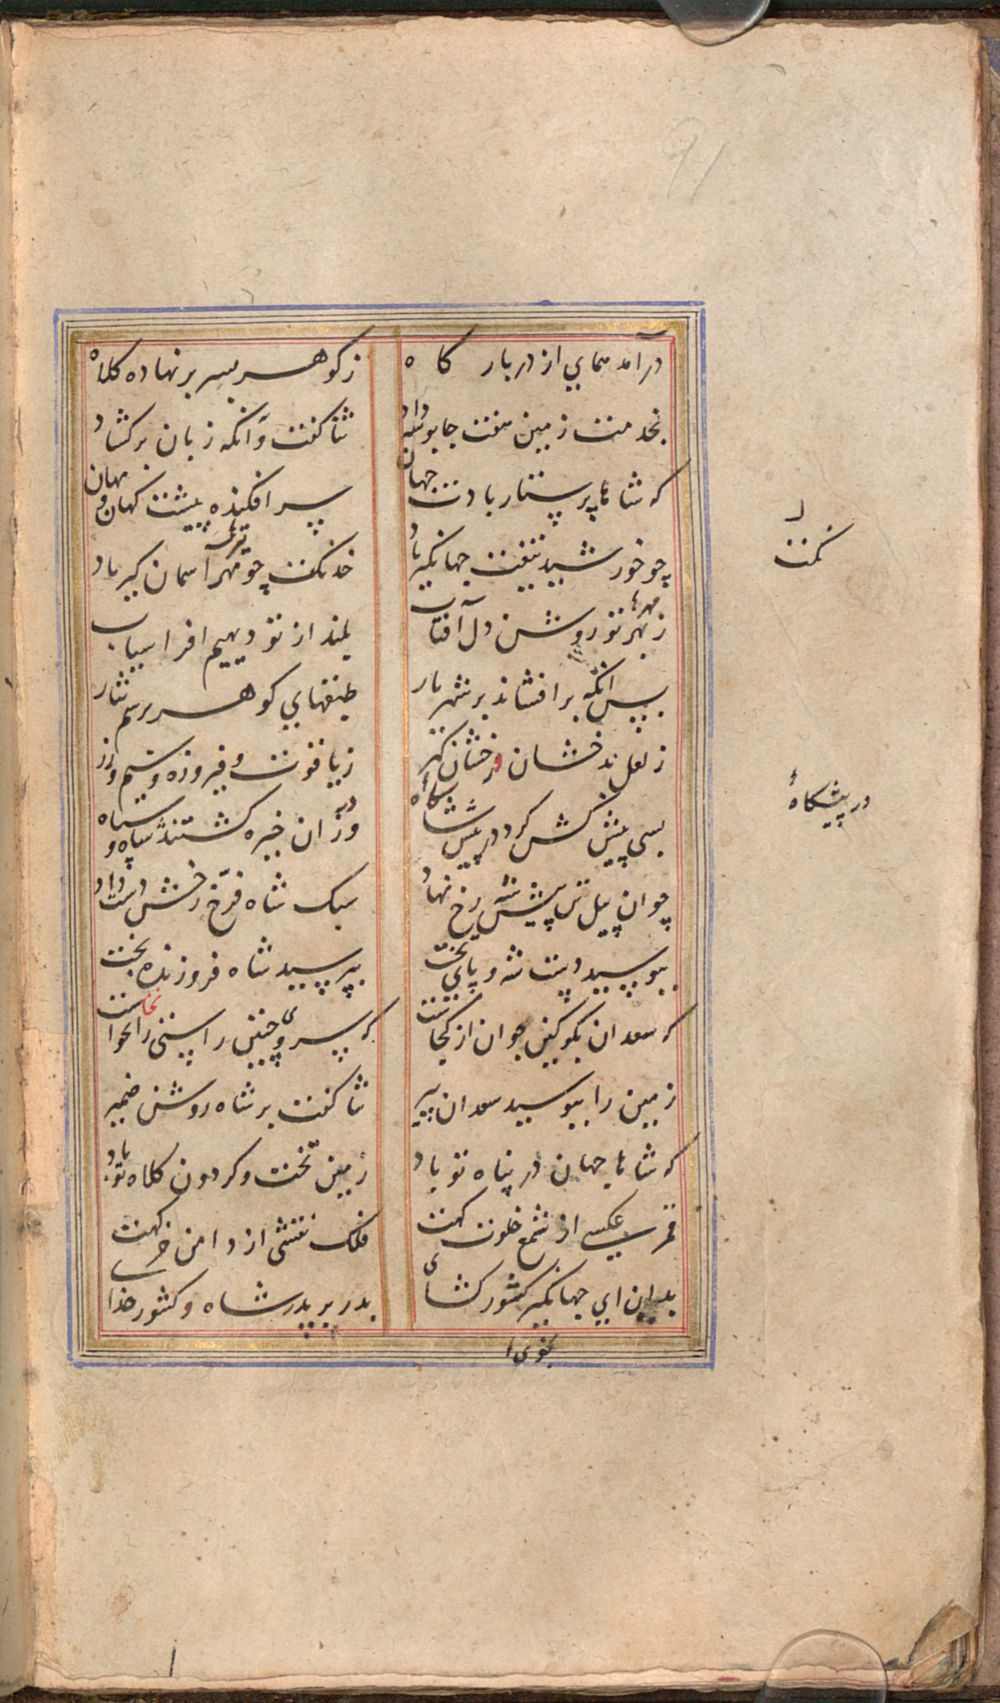 درآمد همای از در بار کاه
ز کوهر بسر بر نهاده کلاه
بخدمت زمین هفت جا بوسه داد
ثنا کفت وآنکه زبان برکشاد
که شاها پرستنار بادت جهان
سر افکنده پیشت کهان و مهان
چو خورشید تیغت جهانکیر باد
خدنکت چو مهر آسمان کیر باد
ز مهر تو روشن دل آفتاب
بلند از تو دیهیم افراسیاب
پس آنکه بر افشاند بر شهریار
طبقهای کوهر برسم نثار
ز لعل بدخشان و رخشان کهر
ز یاقوت و فیروزه و سیم و زر
بسی پیش کش کرد در پیش شاه
وزان خیره کشتند شاه و سپاه
جوان پیل تن پیش شه رخ نهاد
سبک شاه فرّخ رخش دست داد
ببوسید دست شه و پای تخت
بپرسید شاه فروزنده بخت
که سعدان بکو کین جوان از کجاست
که سرو چنین راستی را نخواست
زمین را ببوسید سعدان پیر
ثنا کفت بر شاه روشن ضمیر
که شاها جهان در پناه تو باد
زمین تخت و کردون کلاه تو باد
قمر عکسی از شمع خلوت کهت
فلک نقشی از دامن خرکهت
بدان ای جهانکیر کشور کشای
پدر بر پدر شاه و کشور خدا
در پیشکاهٔ